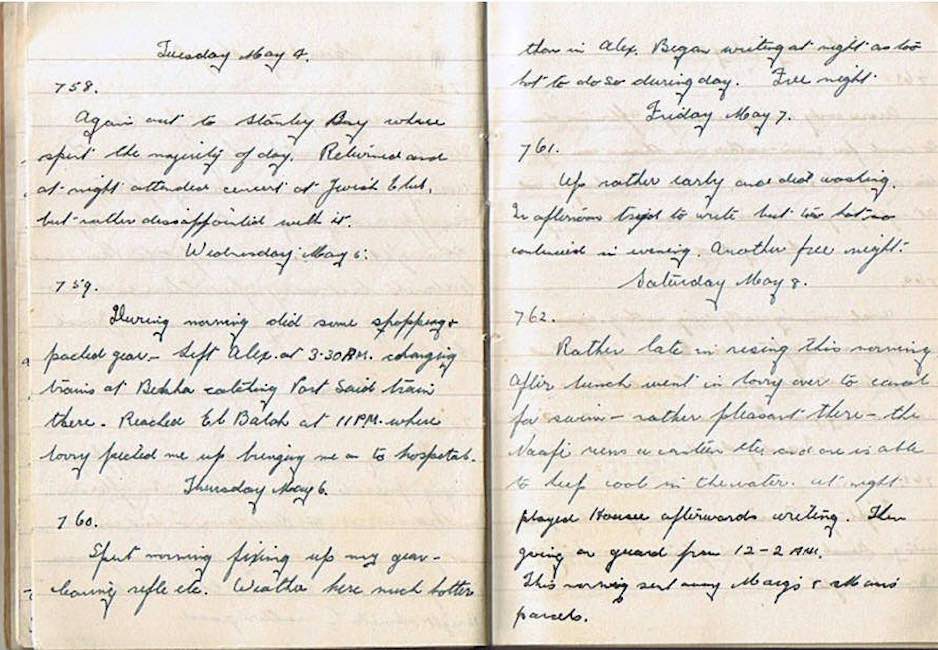 Tuesday May 4.
758.
Again out to Stanley Bay where
spent the majority of day. Returned and
at night attended concert at Jewish Club,
but rather dissappointed with it.
Wednesday May 5.
759.
During morning did some shopping &
packed gear - Left Alex. at 3.30 P.M. changing
trains at Benha catching Port Said train
there. Reached El Balah at 11 P.M. where
lorry picked me up bringing me on to hospital.
Thursday May 6.
760.
Spent morning fixing up my gear -
cleaning rifle etc. Weather here much hotter
than in Alex. Began writing at night as too
hot to do so during day. Free night.
Friday May 7.
761.
Up rather early and did washing.
In afternoon tryed to write but too hot so
continued in evening. Another free night.
Saturday May 8.
762.
Rather late in rising this morning
After lunch went in lorry over to canal
for swim - rather pleasant there - the
Naafi runs a canteen etc, and one is able
to keep cool in the water. At night
played Housee afterwards writing. Then
going on guard from 12-2 A.M.
This morning sent away Marg's & Mums
parcels.